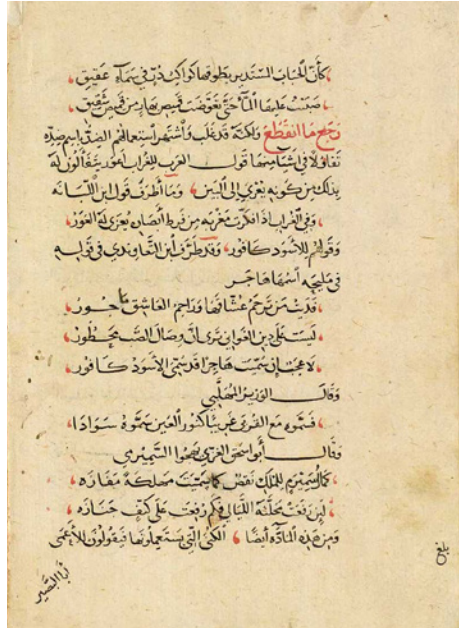 كأن الحباب المستدير بطوقها كواكب در في سماء عقيق
صببت عليها الماء حتى تعوضت قميص بهار من قميص شقيق
رجع ما انقطع ولكنه قد غلب واشتهر استعمالهم الضد باسم ضده
تفاؤلا في اشيا منها قول العرب للغراب اعور يتفاءلون له
بذلك من كونه يعزى الى البين وما أظرف قول ابن اللبانه
وفي الغراب اذا فكرت مغربه من فرط ابصاره يعزى له العور
وقولهم للأسود كافور وقد ظرف ابن التعاويذي في قوله
في مليحه اسمها هاجر
قد من ترحم عشاقها وراحم العاشق ماجور
ليست على دين الغواني ترى ان وصال الصب محظور
لا عجب ان سميت هاجرا قد سمى الأسود كافور
وقال الوزير المهلبي
فسموه مع القربى غريبا كنور العين سموه سوادا
وقال أبو اسحق الغزي يهجوا السميرمي
كمال سميرم للملك نقص كما سميت مهلكة مفازه
لين رفعت محلته الليالي فكم رفعت على كتف جنازه
ومن هذه المادة أيضا الكنى التي يستعملونها فيقولون للأعمى
أبا البصير
بلغ